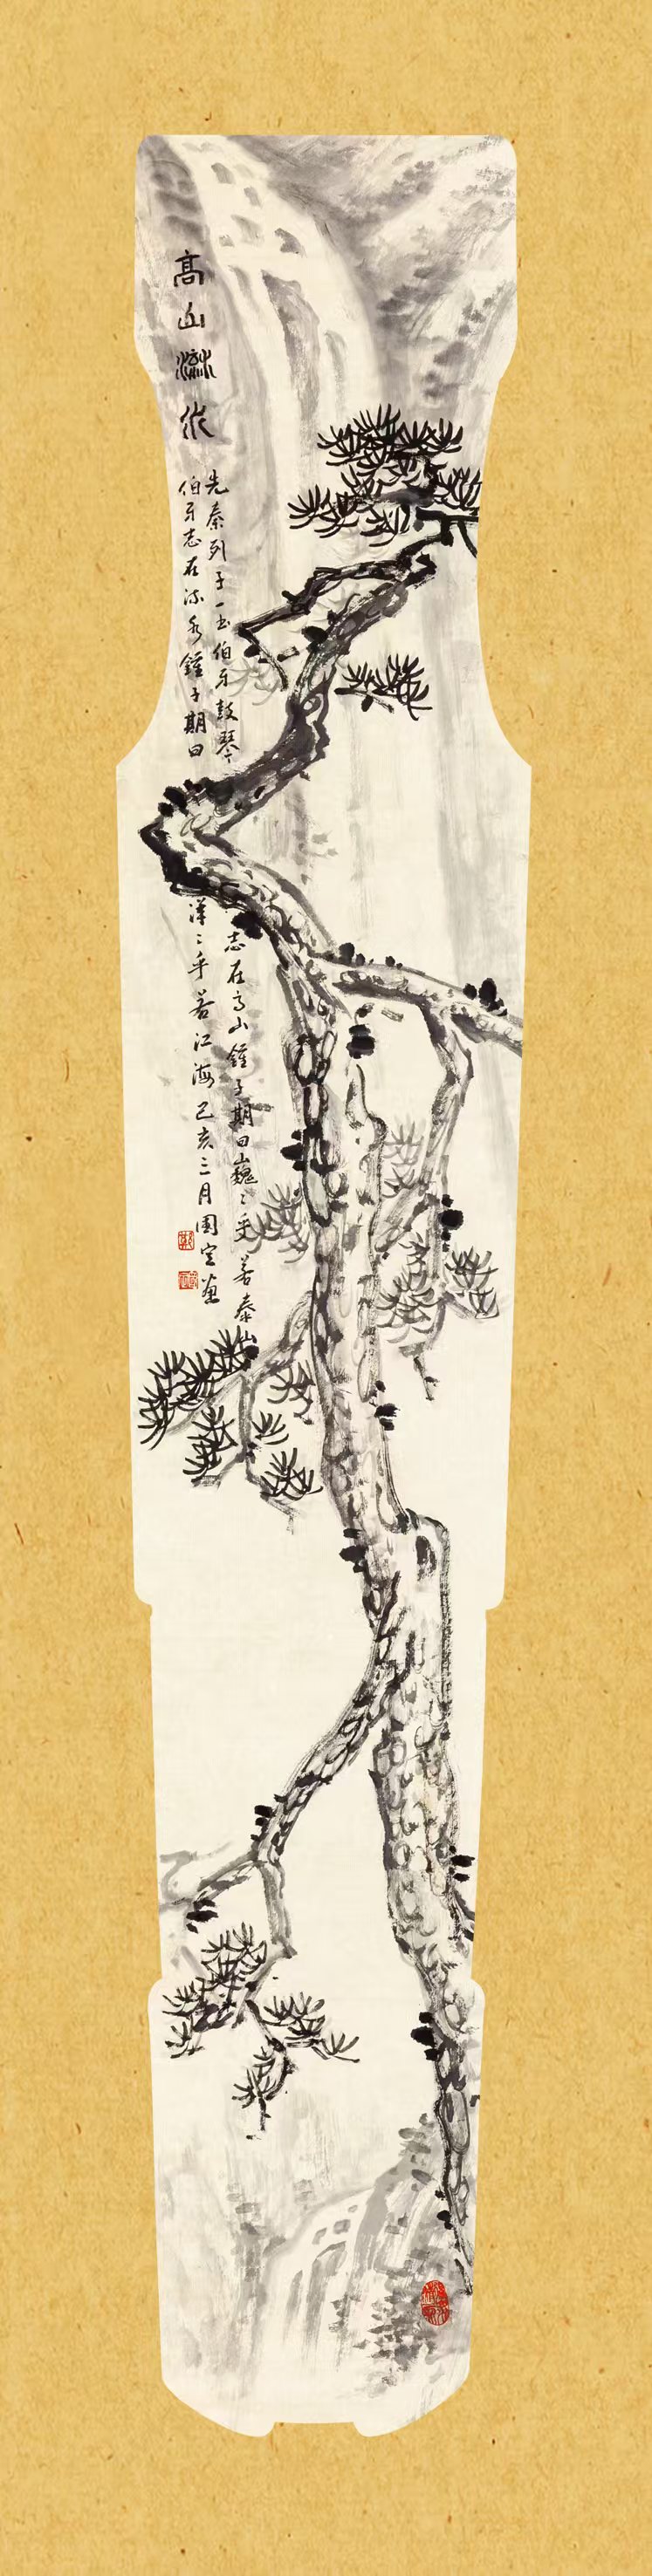 高山流水
先秦列子一书伯牙鼓琴志在高山鍾子期曰巍〻乎若泰山
伯牙志在流水鍾子期曰洋〻乎若江海己亥三月